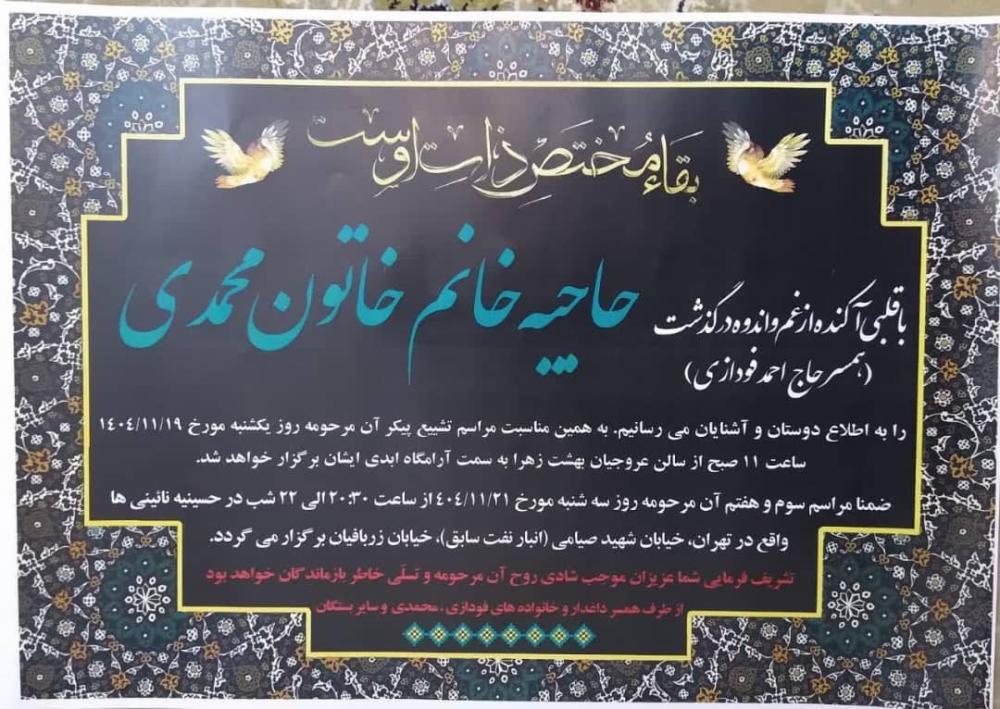 بقاء مختص ذات اوست
با قلبی آکنده از غم و اندوه درگذشت
حاجیه خانم خاتون محمدی
(همسر حاج احمد فودازی)
را به اطلاع دوستان و آشنایان می رسانیم. به همین مناسبت مراسم تشییع پیکر آن مرحومه روز یکشنبه مورخ ۱۴۰۴/۱۱/۱۹
ساعت ۱۱ صبح از سالن عروجیان بهشت زهرا به سمت آرامگاه ابدی ایشان برگزار خواهد شد.
ضمنا مراسم سوم و هفتم آن مرحومه روز سه شنبه مورخ ۴۰۴/۱۱/۲۱ از ساعت ۲۰:۳۰ الی ۲۲ شب در حسینیه نائینی ها
واقع در تهران، خیابان شهید صیامی (انبار نفت سابق)، خیابان زربافیان برگزار می گردد.
تشریف فرمایی شما عزیزان موجب شادی روح آن مرحومه و تسلّی خاطر بازماندگان خواهد بود
از طرف همسر داغدار و خانواده های فودازی، محمدی و سایر بستگان